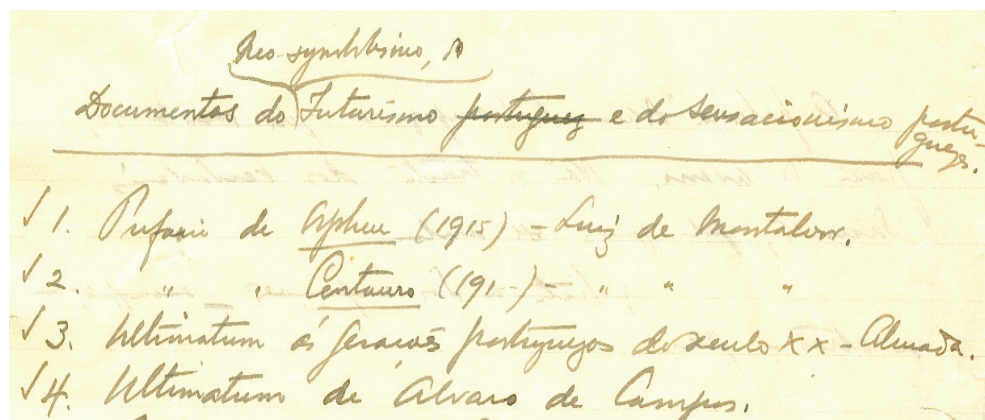 Neo-symbolismo, do
Documentos do Futurismo portuguez e do sensacionismo portu-
guezes.
√ 1. Prefacio de Orpheu (1915) - Luiz de Montalvor.
√ 2. " " Centauro (191-) - " " "
√ 3. Ultimatum ás gerações portuguezas do seculo XX - Almada.
√ 4. Ultimatum de Alvaro de Campos.